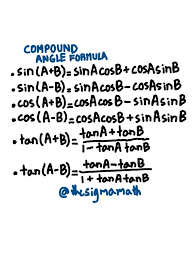 COMPOUND
ANGLE FORMULA
• sin(A+B)=sinAcosB+cosAsinB
• sin(A-B)=sinAcosB-cosAsinB
• cos(A+B)=cosAcosB-sinAsinB
• cos(A-B)=cosAcosB+sinAsinB
• tan(A+B)= tanA+tanB / 1-tanAtanB
• tan(A-B)= tanA-tanB / 1+tanAtanB
@thesigmamath